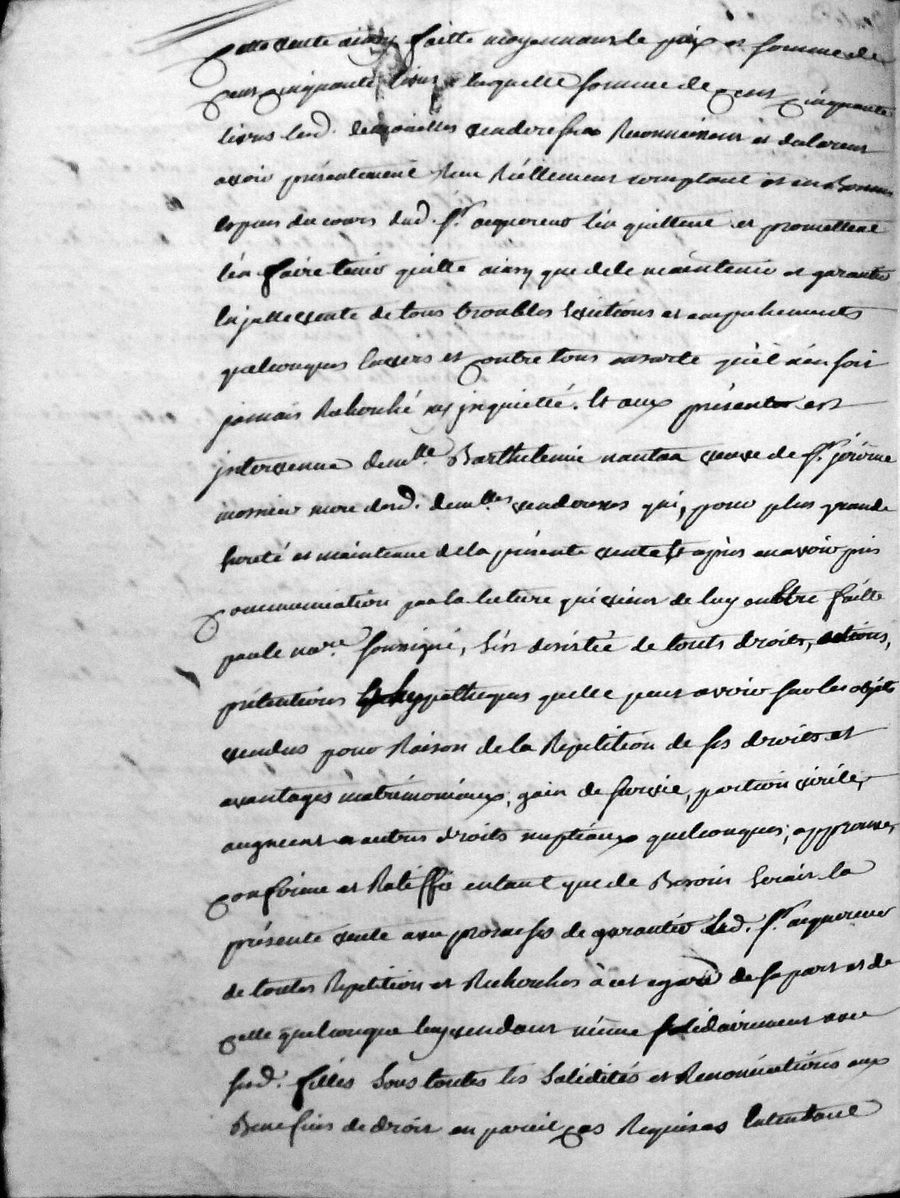 Cette vente ainsy faitte moyennant le prix et somme de
cent cinquante livres laquelle somme de cent cinquante
livres lesd. demoiselles venderesses Reconnoissent et declarent
avoir présentement Reçu Réellement comptant et en bonnes
espèces du cours dud. sr. acquereur l'en quittent et promettent
l'en faire tenir quitte ainsy que de le maintenir et garantir
laditte vente de tous troubles évictions et empechements
quelconques envers et contre tous ensorte qu'il n'en soit
jamais Recherché ny inquietté. Et aux présentes est
intervenue demlle. Barthelemie veuve de sr. jérôme
mere desd. demlles venderesses qui, pour plus grande
sureté et maintenue de la présente vente et après en avoir pris
communication par la lecture qui vient de luy en être faitte
par le nore. soussigné, s'est desistée de touts droits, actions,
prétentions et hypotheques quelle peut avoir sur les objets
vendus pour Raison de la Répétition de ses droits et
avantages matrimoniaux, gain de survie, portion virile,
augment et autres droits nuptiaux quelconques; approuve,
confirme et Ratiffie entant que de Besoin seroit la
présente vente avec promesses de garantir led. sr. acquereur
de toutes Répétition et Recherches à cet egard de sa part et de
celle quelconque même solidairement avec
sesd. filles sous toutes les solidités et Renonciations aux
Benefices de droit en pareil cas Requises